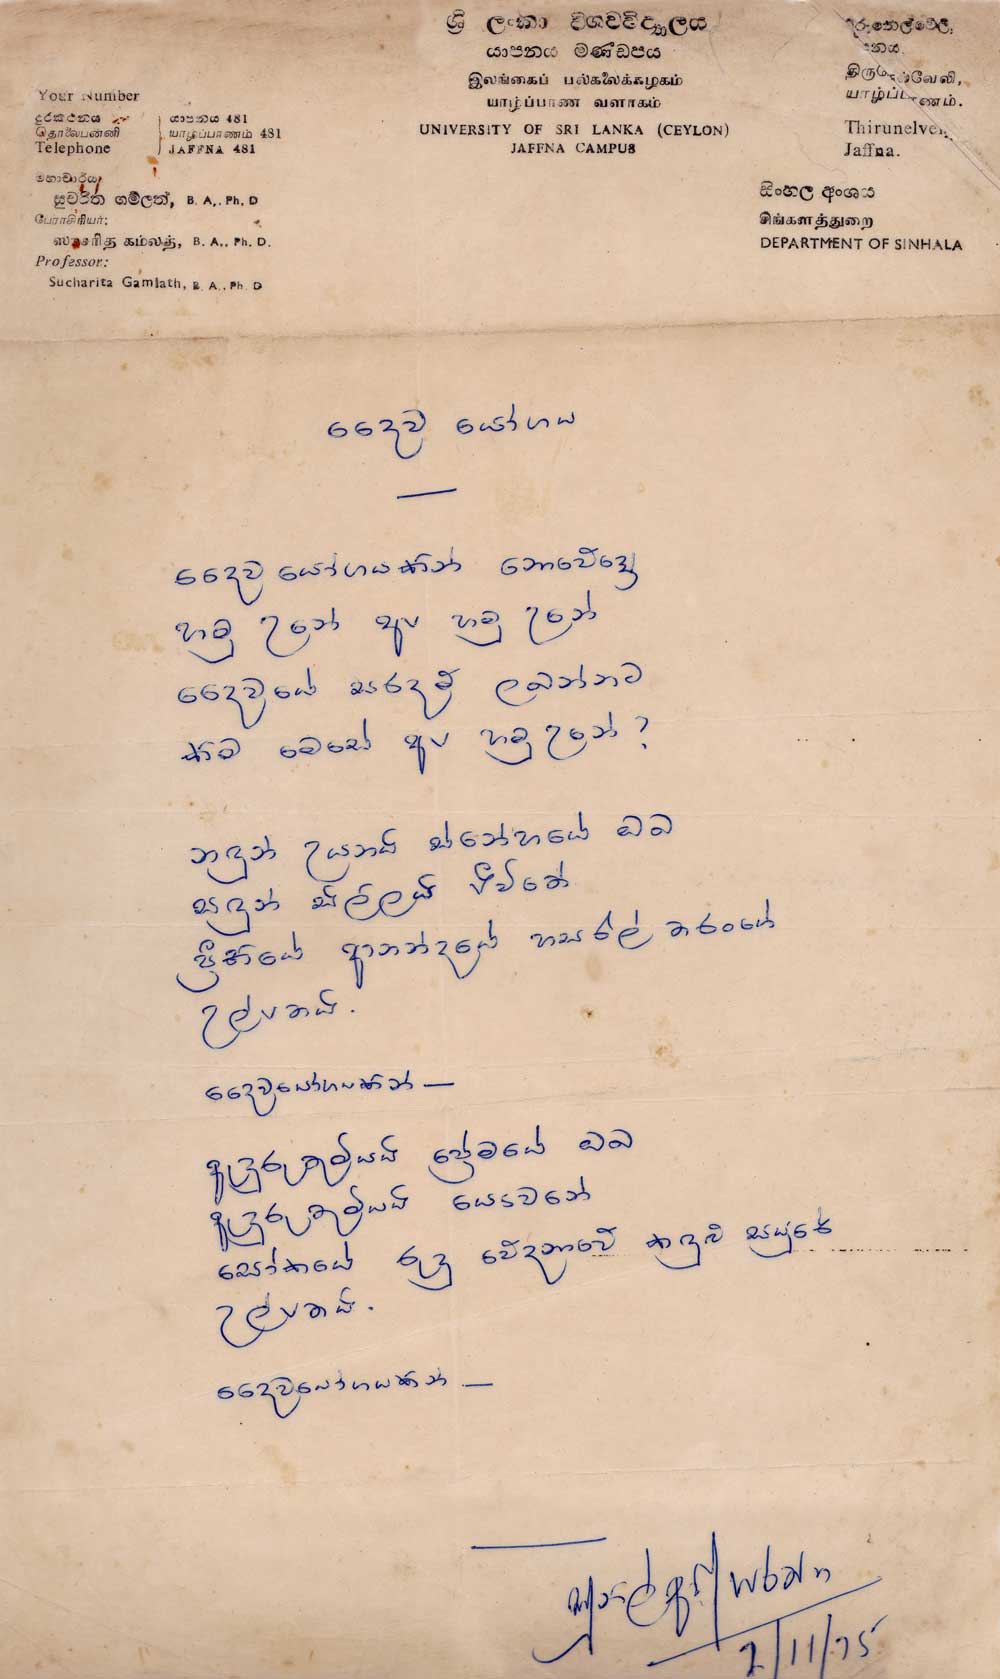 ශ්‍රී ලංකා විශ්වවිද්‍යාලය
යාපනය මණ්ඩපය
இலங்கைப் பல்கலைக்கழகம்
யாழ்ப்பாண வளாகம்
UNIVERSITY OF SRI LANKA (CEYLON)
JAFFNA CAMPUS
යාපනය
திருநெல்வேலி,
யாழ்ப்பாணம்.
Thirunelveli,
Jaffna.
Your Number
දුරකථනය යාපනය 481
தொலைபன்னி யாழ்ப்பாணம் 481
Telephone JAFFNA 481
මහාචාර්ය
සුචරිත ගම්ලත්, B. A., Ph. D
பேராசிரியர்:
ஸுசரித கம்லத், B. A., Ph. D.
Professor:
Sucharita Gamlath, B. A., Ph. D
සිංහල අංශය
சிங்களத்துறை
DEPARTMENT OF SINHALA
දෛව යෝගය
දෛව යෝගයකින් නොවේදෝ
හමු උනේ අප හමු උනේ
දෛවයේ සරදම් ලබන්නට
කිම මෙසේ අප හමු උනේ?
නඳුන් උයනයි ස්නේහයේ ඔබ
සඳුන් සිල්ලයි ජීවිතේ
ප්‍රීතියේ ආනන්දයේ හසරැල් තරංගේ
උල්පතයි.
දෛවයෝගයකින් —
අඳුරු කුටියයි ප්‍රේමයේ ඔබ
අඳුරු කුටියයි යෞවනේ
සෝකයේ රුදු වේදනාවේ කඳුළු සයුරේ
උල්පතයි.
දෛවයෝගයකින් —
2/11/75